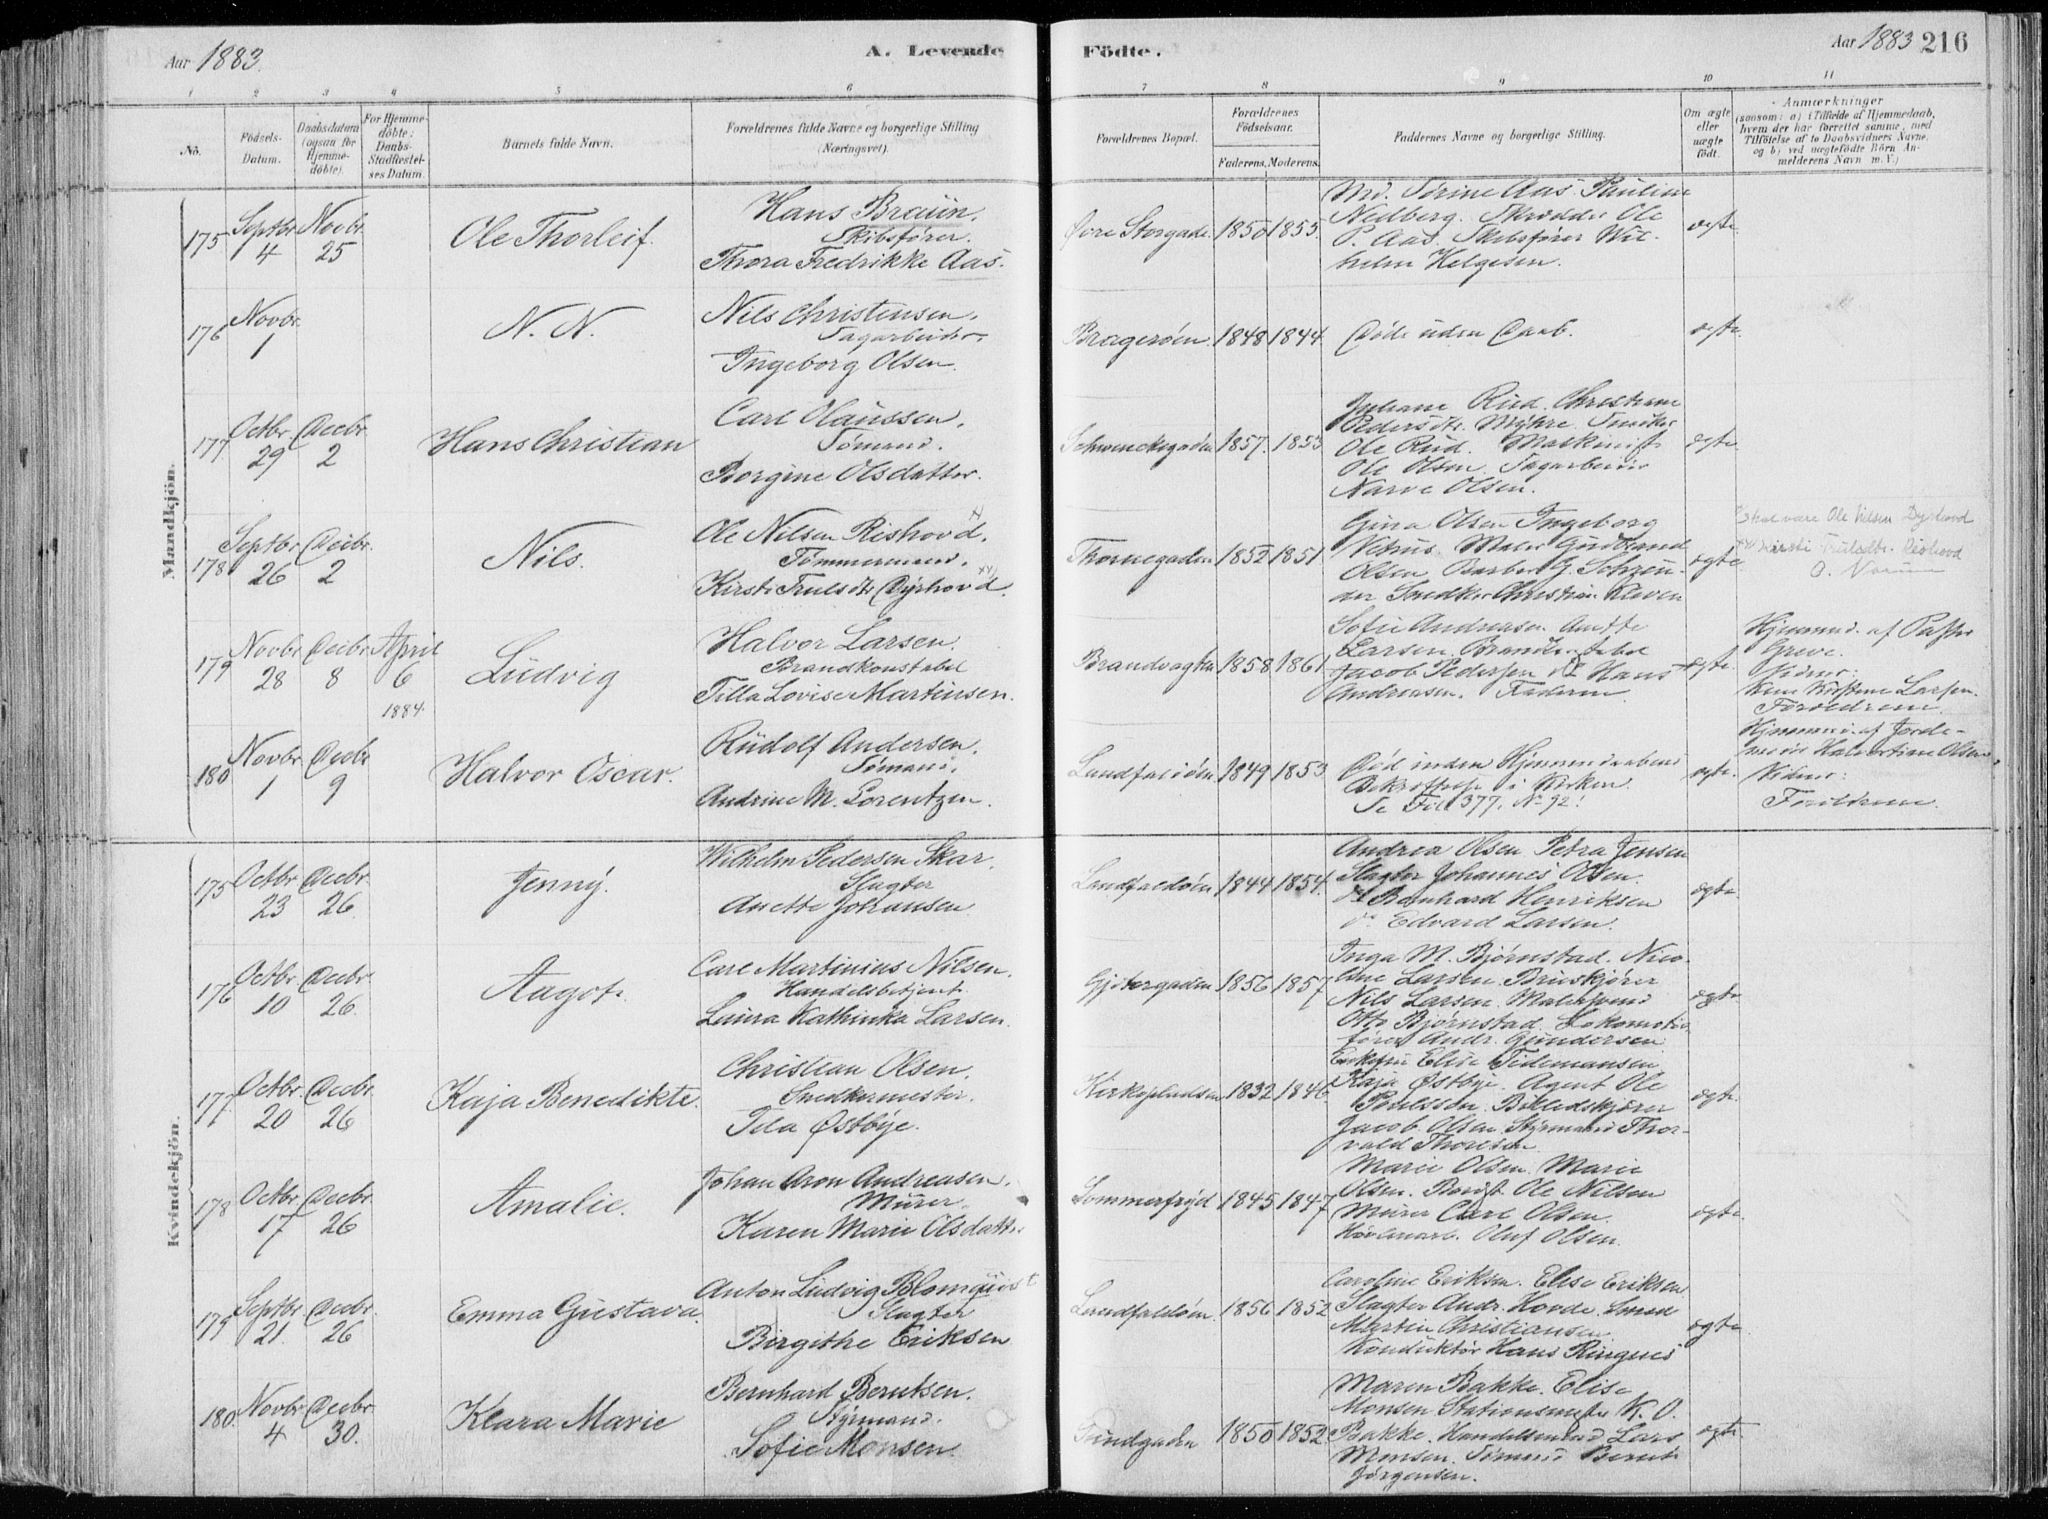 Aar 1883.
A. Levende
Födte.
Aar 1883 216
1 2 3 4 5 6 7 8 9 10 11
No.
Födsels-
Datum.
Daabsdatum
(ogsaa for
Hjemme-
döbte).
For Hjemme-
döbte:
Daabs-
Stadfæstel-
ses Datum.
Barnets fulde Navn.
Forældrenes fulde Navne og borgerlige Stilling
(Næringsvei).
Forældrenes Bopæl.
Forældrenes
Födselsaar.
Faderens. Moderens.
Faddernes Navne og borgerlige Stilling.
Om ægte
eller
uægte
födt.
Anmærkninger
(saasom: a) i Tilfælde af Hjemmedaab,
hvem der har forrettet samme, med
Tilföielse af to Daabsvidners Navne,
og b) ved uægtefödte Börn An-
melderens Navn m. V.)
Mandkjön.
175 Septbr 4 Novbr. 25
Ole Thorleif.
Hans Braün.
Skibsfører.
Thora Fredrikke Aas.
Øvre Storgade. 1850 1855.
Md. Tirine Aas. Pauline
Nedberg. Skrædder Ole
P. Aas. Skibsfører Wil-
helm Helgesen.
ægte.
176 Novbr. 1
N. N.
Nils Christensen.
Sagarbeider.
Ingeborg Olsen.
Bragerøen. 1848 1844.
Døde uden Daab.
ægte.
177 Octbr. 29 Decbr. 2
Hans Christian
Carl Olaüssen.
Sømand.
Borgine Olsdatter.
Schwenckegaden 1857. 1853
Juliane Rüd. Christiane
Pedersdtr. Myhre. Snedker
Ole Rüd. Maskinist
Ole Olsen. Sagarbeider
Narve Olsen.
ægte.
178 Septbr. 26 Decbr. 2
Nils.
Ole Nilsen Rishovd.
Tømmermand.
Kirsti Trulsdtr Dyrhovd.
Thornegaden 1852 1851
Gina Olsen Ingeborg
Olsen Barber G. Schrøü-
der Snedker Christian Kleven
ægte
skal være Ole Nilsen Dyrhovd
Kirsti Trulsdtr. Rishovd
179 Novbr 28 Decbr. 8 April 6 1884.
Lüdvig
Halvor Larsen.
Brandkonstabel
Tilla Lovise Martinsen.
Brandvagten 1858 1861
Sofie Andreasen Anette
Larsen. Brandkonstabel
Jacob Pedersen do Hans
Andreasen. Faderen
ægte.
Hjemmed. af Pastor
Greve.
Vidner:
Larsen.
Forældrene
180 Novbr. 1 Decbr 9
Halvor Oscar.
Rüdolf Andersen.
Sømand.
Andrine M. Lorentzen.
Landfaløen 1849 1853
Død inden Hjemmedaabens
Bekræftelse i Kirken.
Se Fol 377, No 92!
ægte.
Hjemmed. af Jorde-
moder Halvortine Olsen.
Vidner:
Forældrene.
Kvindekjön.
175 Octbr. 23 Decbr. 26
Jenny.
Wilhelm Pedersen Skar.
Slagter
Anette Johansen
Landfaldøen 1844 1854.
Andrea Olsen Petra Jensen
Slagter Johannes Olsen.
do Bernhard Henriksen
do Edvard Larsen.
ægte.
176 Octbr. 10 Decbr. 26
Aagot.
Carl Martinius Nilsen.
Handelsbetjent.
Laura Kathinka Larsen.
Gjetergaden 1856 1857
Inga M. Bjørnstad. Nico-
line Larsen. Brüskjører
Nils Larsen. Malersvend
Otto Bjørnstad. Lokomotiv-
fører Andr. Gündersen
ægte
177. Octbr. 20 Decbr. 26
Kaja Benedikte.
Christian Olsen.
Snedkermester.
Ida Østbye.
Kirkepladsen 1832 1846.
Enkefrü Elise Tidemansen
Kaja Østbye. Agent Ole
Poülssen.
Jacob Olsen. Styrmand Thor-
vald Thoresen
ægte.
178 Octbr. 17 Decbr. 26
Amalie.
Johan Aron Andreasen.
Mürer.
Karen Marie Olsdatter.
Sommerfryd 1845 1847
Marie Olsen. Marie
Olsen. Ole Nilsen
Mürer Carl Olsen.
Høvlemand. Oluf Olsen.
ægte.
179 Septbr. 21. Decbr. 26
Emma Güstava.
Anton Lüdvig Blomqüist
Slagter
Birgithe Eriksen
Landfaldøen. 1856 1852
Caroline Eriksen. Elise Eriksen
Slagter Andr. Hovde. Smed
Martin Christiansen.
Konduktør Hans Ringnes
ægte
180. Novbr. 4 Decbr 30.
Klara Marie
Bernhard Berntsen.
Styrmand.
Sofie Monsen.
Sündgaden 1850 1852.
Maren Bakke. Elise
Monsen Stationsmester K. O.
Bakke. Handelsmand Lars
Monsen. Sømand Bernt
Jørgensen.
ægte